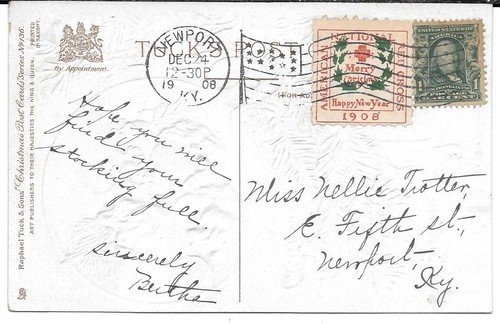 Raphael Tuck & Sons' "Christmas" Post Card Series No 136.
ART PUBLISHERS TO THEIR MAJESTIES THE KING & QUEEN.
PRINTED
IN SAXONY
By Appointment.
TUCK'S POST
(FOR AD
NEWPORT
DEC 24
12-30P
1908
KY.
AMERICAN NATIONAL RED CROSS
Merry
Christmas
Happy New Year
1908
Hope you will
find your
stocking full.
Sincerely
Bertha
Miss Nellie Trotter,
E. Fifth st.,
Newport,
Ky.